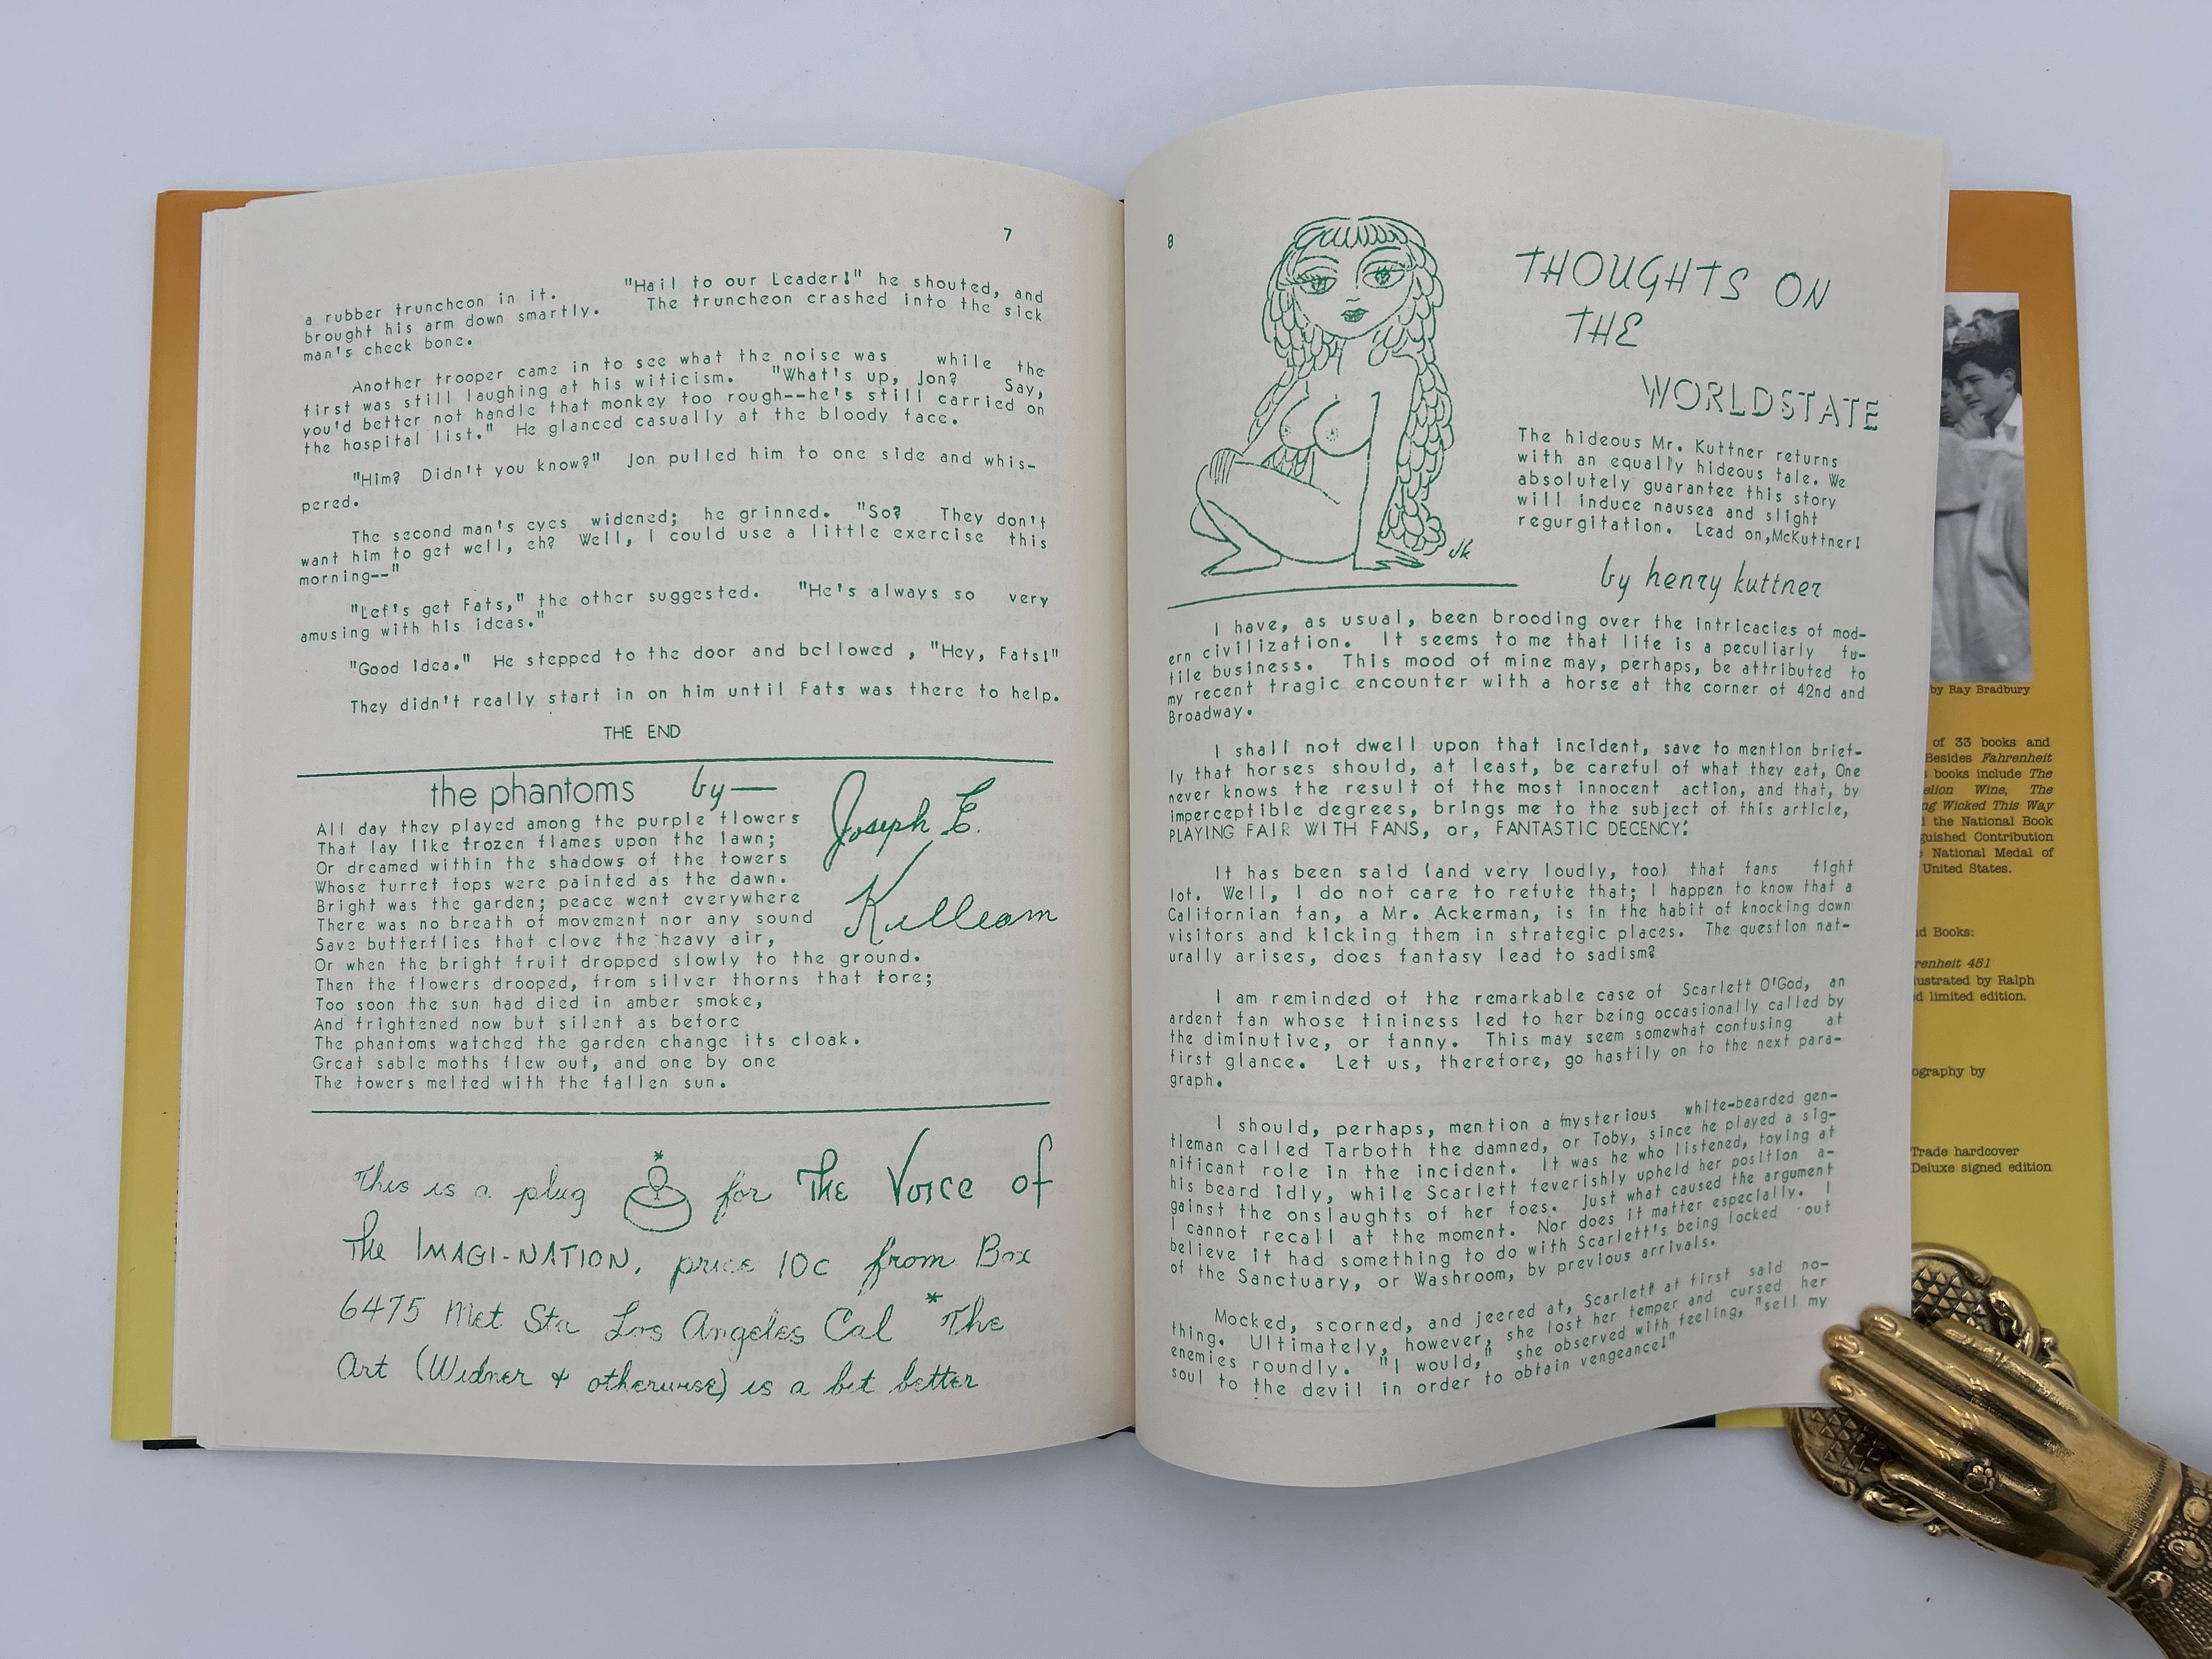 7
a rubber truncheon in it. "Hail to our Leader!" he shouted, and
brought his arm down smartly. The truncheon crashed into the sick
man's cheek bone.
Another trooper came in to see what the noise was while the
first was still laughing at his witicism. "What's up, Jon? Say,
you'd better not handle that monkey too rough--he's still carried on
the hospital list." He glanced casually at the bloody face.
"Him? Didn't you know?" Jon pulled him to one side and whis-
pered.
The second man's eyes widened; he grinned. "So? They don't
want him to get well, eh? Well, I could use a little exercise this
morning--"
"Let's get Fats," the other suggested. "He's always so very
amusing with his ideas."
"Good idea." He stepped to the door and bellowed , "Hey, Fats!"
They didn't really start in on him until Fats was there to help.
THE END
the phantoms by—
Joseph E.
Kelleam
All day they played among the purple flowers
That lay like frozen flames upon the lawn;
Or dreamed within the shadows of the towers
Whose turret tops were painted as the dawn.
Bright was the garden; peace went everywhere
There was no breath of movement nor any sound
Save butterflies that clove the heavy air,
Or when the bright fruit dropped slowly to the ground.
Then the flowers drooped, from silver thorns that tore;
Too soon the sun had died in amber smoke,
And frightened now but silent as before
The phantoms watched the garden change its cloak.
Great sable moths flew out, and one by one
The towers melted with the fallen sun.
This is a plug * for The Voice of
The IMAGI-NATION, price 10c from Box
6475 Met Sta Los Angeles Cal *The
Art (Widner & otherwise) is a bit better
8
THOUGHTS ON
THE
WORLDSTATE
The hideous Mr. Kuttner returns
with an equally hideous tale. We
absolutely guarantee this story
will induce nausea and slight
regurgitation. Lead on,McKuttner!
by henry kuttner
JK
I have, as usual, been brooding over the intricacies of mod-
ern civilization. It seems to me that life is a peculiarly fu-
tile business. This mood of mine may, perhaps, be attributed to
my recent tragic encounter with a horse at the corner of 42nd and
Broadway.
I shall not dwell upon that incident, save to mention brief-
ly that horses should, at least, be careful of what they eat, One
never knows the result of the most innocent action, and that, by
imperceptible degrees, brings me to the subject of this article,
PLAYING FAIR WITH FANS, or, FANTASTIC DECENCY:
It has been said (and very loudly, too) that fans fight
lot. Well, I do not care to refute that; I happen to know that a
Californian fan, a Mr. Ackerman, is in the habit of knocking down
visitors and kicking them in strategic places. The question nat-
urally arises, does fantasy lead to sadism?
I am reminded of the remarkable case of Scarlett O'God, an
ardent fan whose tininess led to her being occasionally called by
the diminutive, or fanny. This may seem somewhat confusing at
first glance. Let us, therefore, go hastily on to the next para-
graph.
I should, perhaps, mention a mysterious white-bearded gen-
tleman called Tarboth the damned, or Toby, since he played a sig-
nificant role in the incident. It was he who listened, toying at
his beard idly, while Scarlett feverishly upheld her position a-
gainst the onslaughts of her foes. Just what caused the argument
I cannot recall at the moment. Nor does it matter especially. I
believe it had something to do with Scarlett's being locked out
of the Sanctuary, or Washroom, by previous arrivals.
Mocked, scorned, and jeered at, Scarlett at first said no-
thing. Ultimately, however, she lost her temper and cursed her
enemies roundly. "I would," she observed with feeling, "sell my
soul to the devil in order to obtain vengeance!"
by Ray Bradbury
of 33 books and
Besides Fahrenheit
books include The
Wine, The
Wicked This Way
the National Book
Contribution
National Medal of
United States.
Books:
451
by Ralph
limited edition.
by
Trade hardcover
Deluxe signed edition